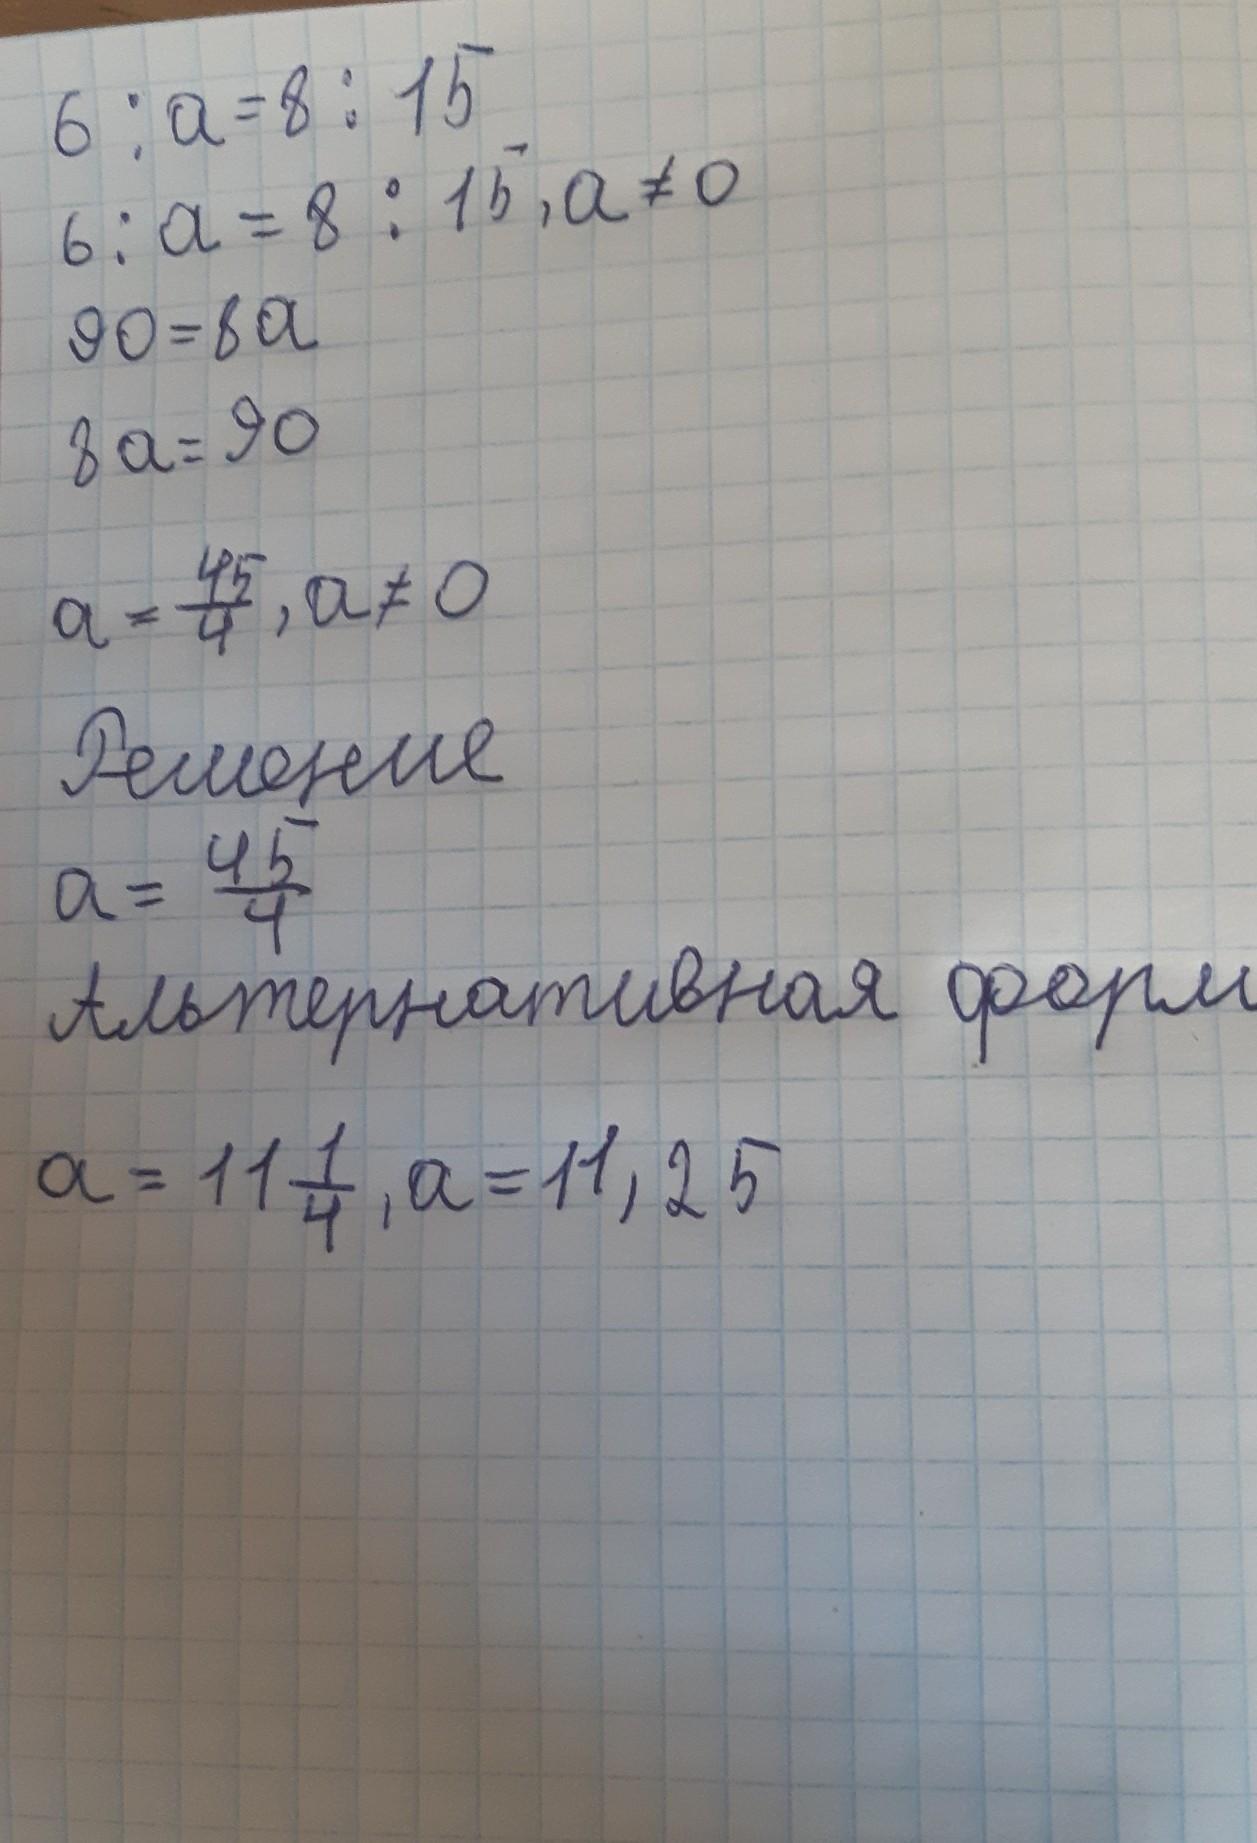 6 : a = 8 : 15
6 : a = 8 : 15, a ≠ 0
90 = 8a
8a = 90
a = 45/4, a ≠ 0
Решение
a = 45/4
Альтернативная форм
a = 11 1/4, a = 11,25